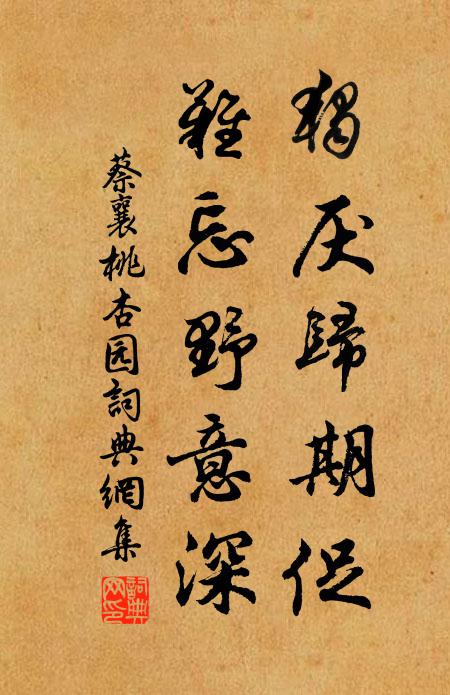 獨厌歸期促
難忘野意深
蔡襄桃杏园詞典網集
詞典网印